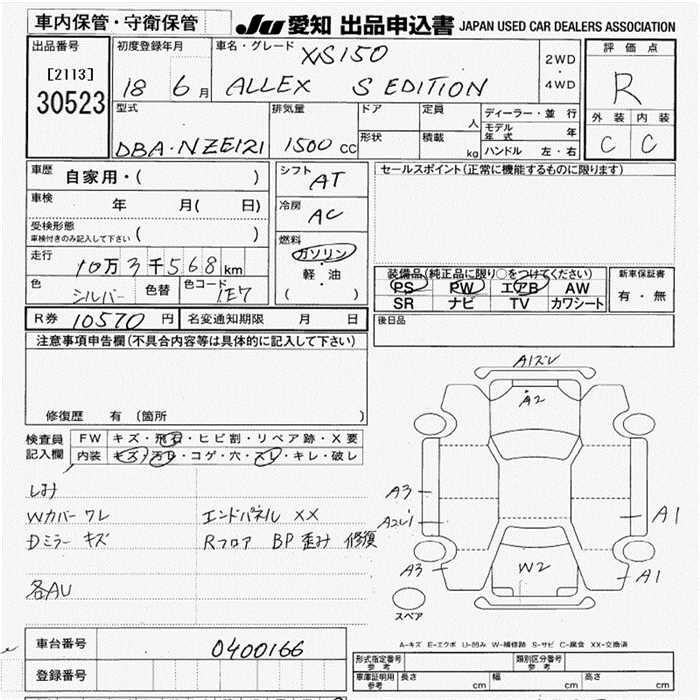 車内保管・守衛保管
JU 愛知 出品申込書 JAPAN USED CAR DEALERS ASSOCIATION
出品番号
[2113]
30523
初度登録年月
18 6月
車名・グレード
XS150
ALLEX S EDITION
2WD
・
4WD
評価点
R
外装 内装
C C
型式
DBA・NZE121
排気量
1500cc
ドア
定員
人
形状
積載
kg
ディーラー・並行
モデル年式 年
ハンドル 左・右
車歴 自家用・( )
車検 年 月( 日)
受検形態
車検付きのみ記入して下さい ( )
走行 10万3千568km
色 シルバー 色替 色コード 1E7
シフト AT
冷房 AC
燃料
ガソリン
・
軽・油
( )
セールスポイント(正常に機能するものに限ります)
装備品(純正品に限り○をつけてください)
PS PW エアB AW
SR ナビ TV カワシート
新車保証書
有・無
R券 10570円 名変通知期限 月 日
後日品
注意事項申告欄(不具合内容等は具体的に記入して下さい)
修復歴 有 (箇所 )
検査員
記入欄
FW キズ・飛石・ヒビ割・リペア跡・X要
内装 キズ・汚レ・コゲ・穴・スレ・キレ・破レ
しみ
Wカバー ワレ
Dミラー キズ
エンドパネル XX
Rフロア BP歪み 修復
各AU
A1ズレ
A2
A3
A3
W2
A1
A1
スペア
A-キズ E-エクボ U-凹み W-補修跡 S-サビ C-腐食 XX-交換済
車台番号 0400166
登録番号
形式指定番号
参考
類別区分番号
参考
車庫証明用
参考
長さ cm 幅 cm 高さ cm